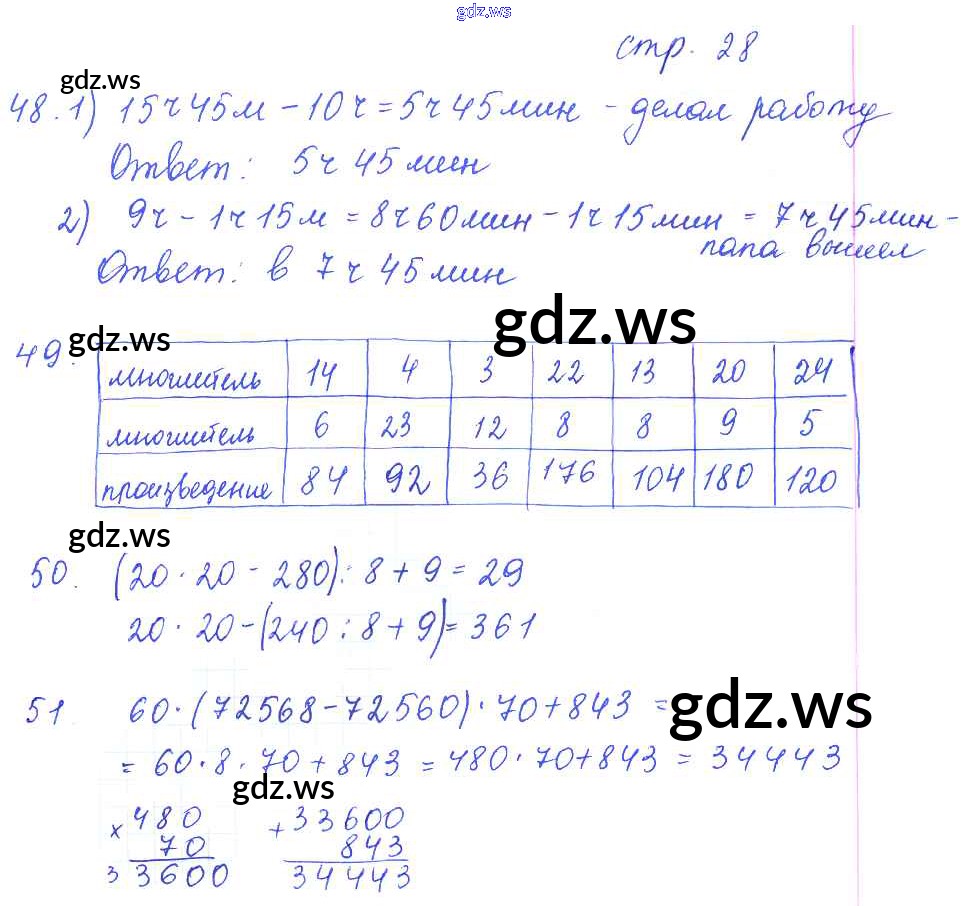 gdz.ws
стр. 28
gdz.ws
48.1) 15ч45м - 10ч = 5ч45мин - делал работу
Ответ: 5ч 45мин
2) 9ч - 1ч15м = 8ч60мин - 1ч15мин = 7ч45мин -
папа вышел
Ответ: в 7ч45мин
gdz.ws
gdz.ws
49.
множитель 14 4 3 22 13 20 24
множитель 6 23 12 8 8 9 5
произведение 84 92 36 176 104 180 120
gdz.ws
50. (20 · 20 - 280) : 8 + 9 = 29
20 · 20 - (240 : 8 + 9) = 361
gdz.ws
51 60 · (72568 - 72560) · 70 + 843 =
= 60 · 8 · 70 + 843 = 480 · 70 + 843 = 34443
gdz.ws
x 480 + 33600
70 843
33600 34443